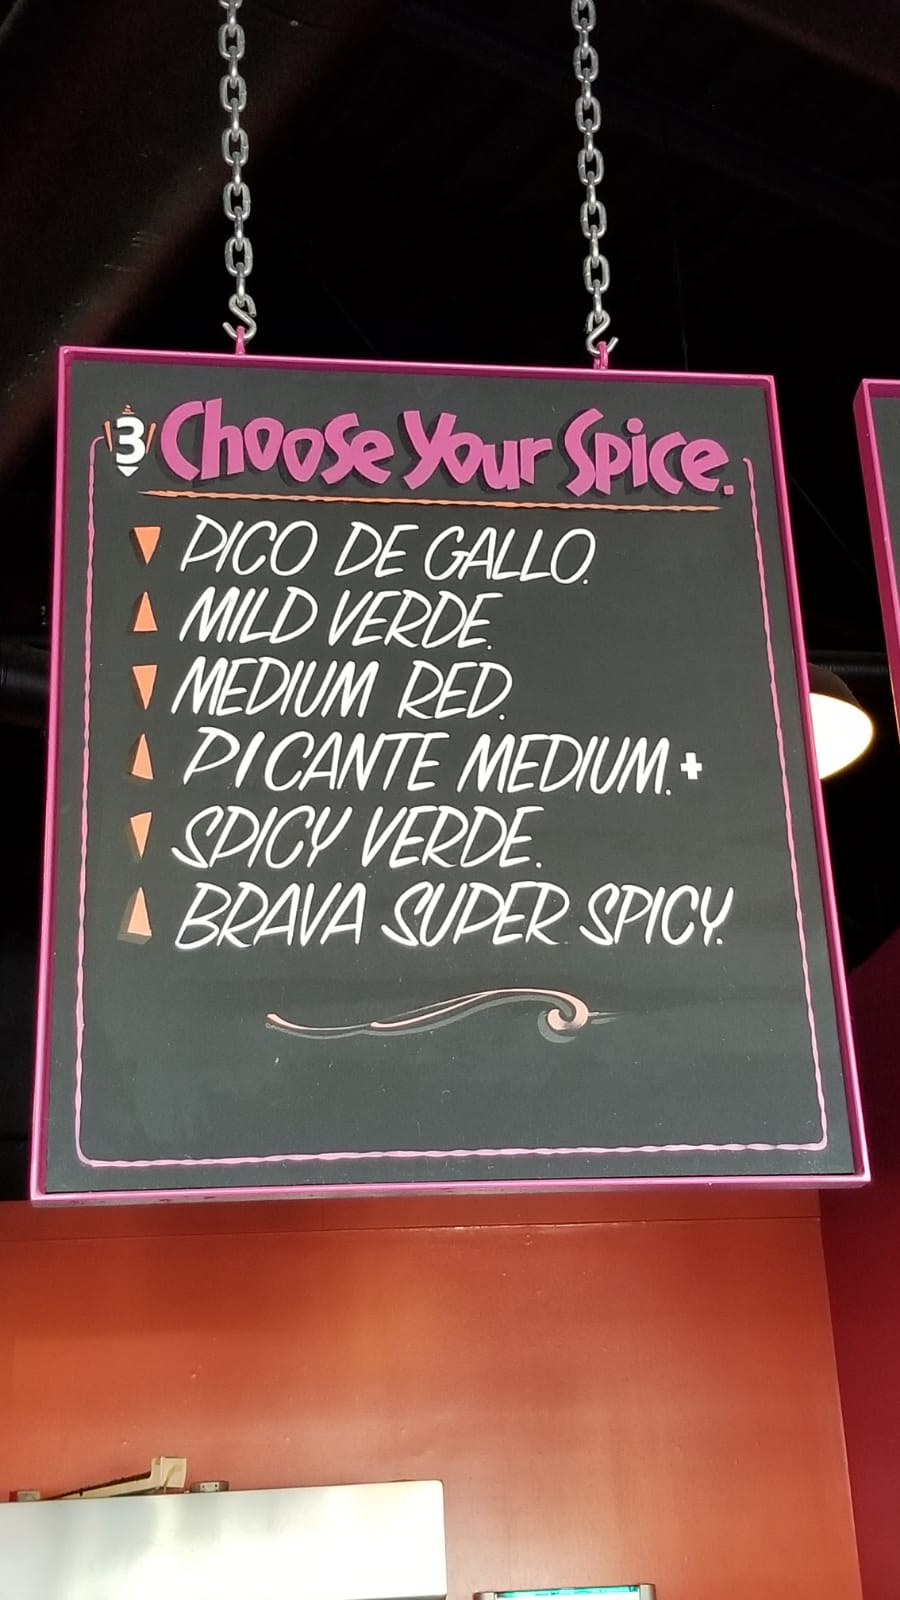 3 Choose Your Spice.
PICO DE GALLO.
MILD VERDE.
MEDIUM RED.
PICANTE MEDIUM.+
SPICY VERDE.
BRAVA SUPER SPICY.